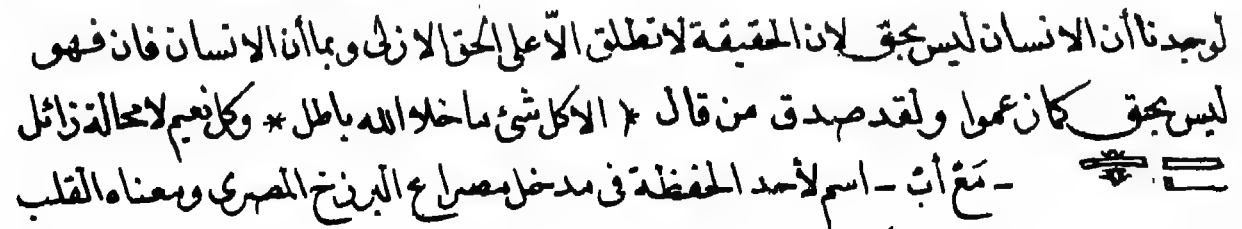 لوجدنا أن الانسان ليس بحق لان الحقيقة لا تطلق الّا على الحق الازلى وبما أن الانسان فان فهو
ليس بحق كما زعموا ولقد صدق من قال * الا كل شئ ما خلا الله باطل * وكل نعيم لا محالة زائل
– مَعْ أبْ – اسم لأحد الحفظة فى مدخل مصراع البرزخ المصرى ومعناه القلب